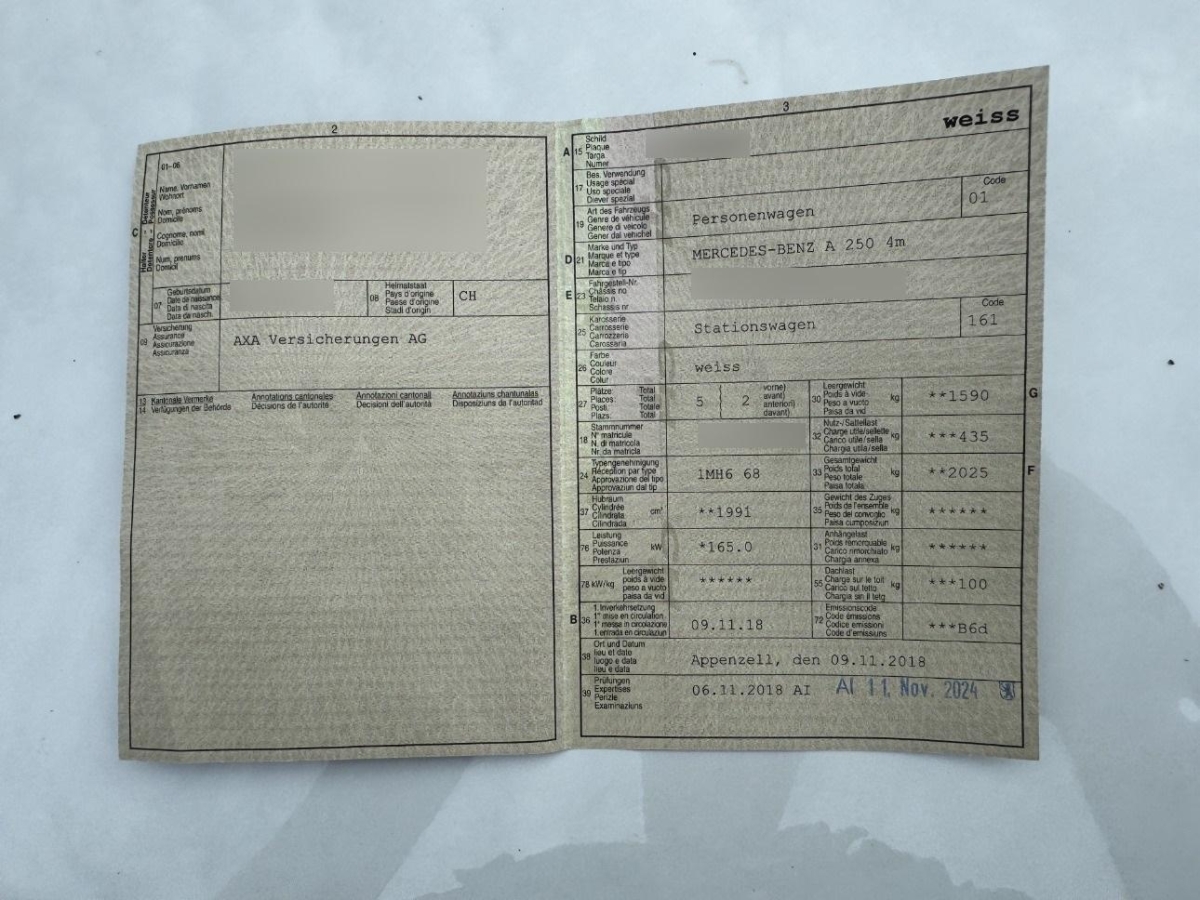 2
01-06
Halter - Détenteur
Detentore - Possessur
C
Name, Vornamen
Wohnort
Nom, prénoms
Domicile
Cognome, nomi
Domicilio
Num, prenums
Domicil
07
Geburtsdatum
Date de naissance
Data di nascita
Data da nasch.
08
Heimatstaat
Pays d'origine
Paese d'origine
Stadi d'origin
CH
09
Versicherung
Assurance
Assicurazione
Assicuranza
AXA Versicherungen AG
13 Kantonale Vermerke
14 Verfügungen der Behörde
Annotations cantonales
Décisions de l'autorité
Annotazioni cantonali
Decisioni dell'autorità
Annotaziuns chantunalas
Disposiziuns da l'autoritad
3
weiss
A 15
Schild
Plaque
Targa
Numer
17
Bes. Verwendung
Usage spécial
Uso speciale
Diever spezial
19
Art des Fahrzeugs
Genre de véhicule
Genere di veicolo
Gener dal vehichel
Personenwagen
Code
01
D 21
Marke und Typ
Marque et type
Marca e tipo
Marca e tip
MERCEDES-BENZ A 250 4m
E 23
Fahrgestell-Nr.
Châssis no
Telaio n.
Schassis nr
25
Karosserie
Carrosserie
Carrozzeria
Carossaria
Stationswagen
Code
161
26
Farbe
Couleur
Colore
Colur
weiss
27
Plätze: Total
Places: Total
Posti: Totale
Plazs: Total
5 2
vorne)
avant)
anteriori)
davant)
30
Leergewicht
Poids à vide
Peso a vuoto
Paisa da vid
kg
**1590
G
18
Stammnummer
N° matricule
N. di matricola
Nr. da matricla
32
Nutz-/Sattellast
Charge utile/sellette
Carico utile/sella
Chargia utila/sella
kg
***435
24
Typengenehmigung
Réception par type
Approvazione del tipo
Approvaziun dal tip
1MH6 68
33
Gesamtgewicht
Poids total
Peso totale
Paisa totala
kg
**2025
F
37
Hubraum
Cylindrée
Cilindrata
Cilindrada
cm³
**1991
35
Gewicht des Zuges
Poids de l'ensemble
Peso del convoglio
Paisa cumposiziun
kg
******
76
Leistung
Puissance
Potenza
Prestaziun
kW
*165.0
31
Anhängelast
Poids remorquable
Carico rimorchiato
Chargia annexa
kg
******
78 kW/kg
Leergewicht
poids à vide
peso a vuoto
paisa da vid
******
55
Dachlast
Charge sur le toit
Carico sul tetto
Chargia sin il tetg
kg
***100
B 36
1. Inverkehrsetzung
1re mise en circulation
1a messa in circolazione
1. entrada en circulaziun
09.11.18
72
Emissionscode
Code émissions
Codice emissioni
Code d'emissiuns
***B6d
38
Ort und Datum
lieu et date
luogo e data
lieu e data
Appenzell, den 09.11.2018
39
Prüfungen
Expertises
Perizie
Examinaziuns
06.11.2018 AI
AI 11. Nov. 2024